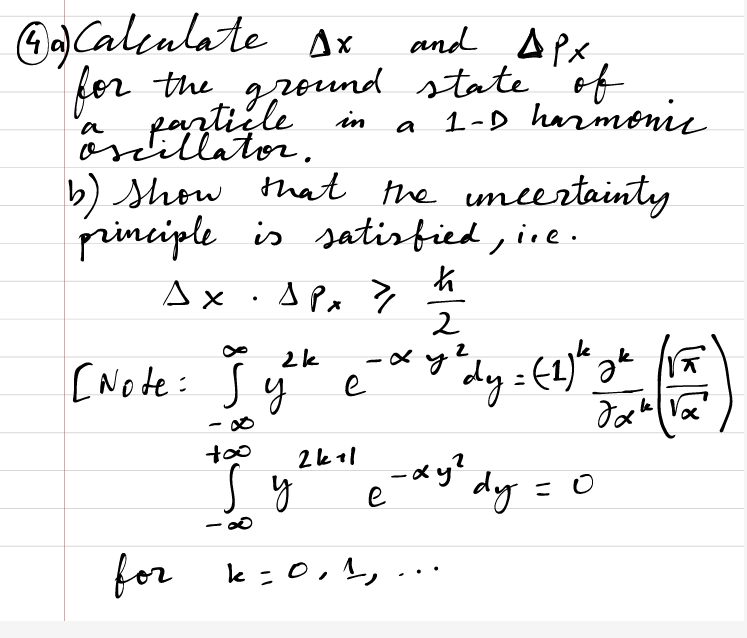 4 a) Calculate Δx and Δpx
for the ground state of
a particle in a 1-D harmonic
oscillator.
b) Show that the uncertainty
principle is satisfied, i.e.
Δx · Δpx ≥ ℏ/2
[Note: ∫_{-∞}^{∞} y^{2k} e^{-αy²} dy = (-1)^k ∂^k/∂α^k (√π/√α)
∫_{-∞}^{+∞} y^{2k+1} e^{-αy²} dy = 0
for k = 0, 1, ...